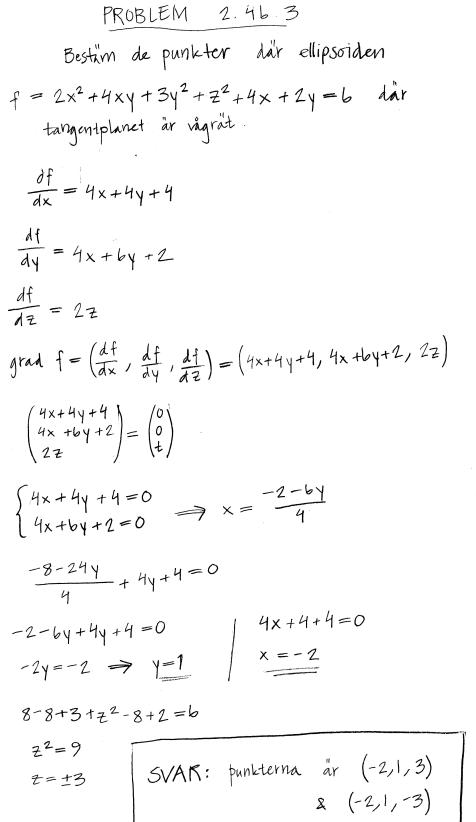 PROBLEM 2.46.3
Bestäm de punkter där ellipsoiden
f = 2x² + 4xy + 3y² + z² + 4x + 2y = 6 där
tangentplanet är vågrät.
df/dx = 4x + 4y + 4
df/dy = 4x + 6y + 2
df/dz = 2z
grad f = (df/dx, df/dy, df/dz) = (4x+4y+4, 4x+6y+2, 2z)
(4x+4y+4) = (0)
(4x+6y+2) = (0)
(2z) = (t)
{4x+4y+4=0
{4x+6y+2=0 ⇒ x = (-2-6y)/4
(-8-24y)/4 + 4y+4=0
-2-6y+4y+4=0 | 4x+4+4=0
-2y=-2 ⇒ y=1 | x=-2
8-8+3+z²-8+2=6
z²=9
z=±3
SVAR: punkterna är (-2,1,3)
& (-2,1,-3)